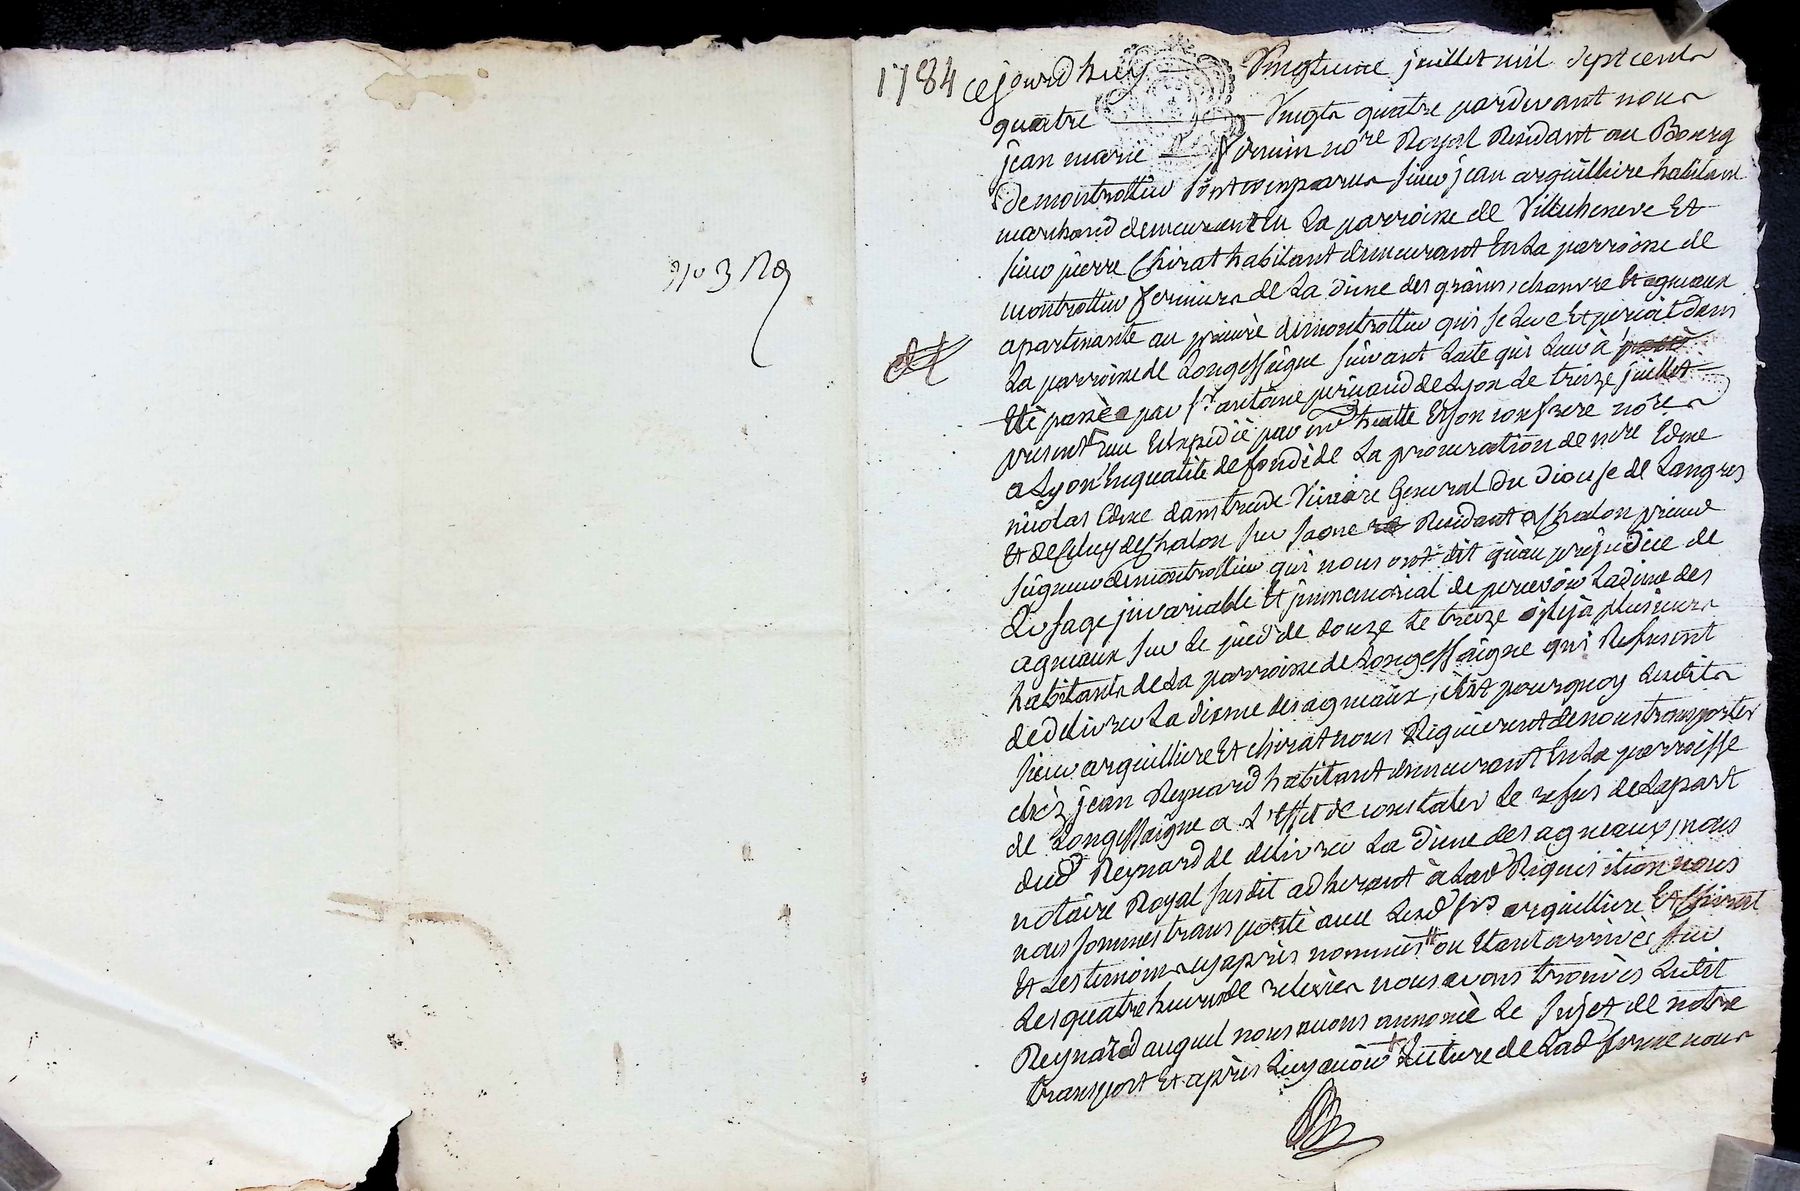 1784
cejourd huy vingtieme juillet mil sept cents
quatre vingts quatre pardevant nous
jean marie no.re Royal Residant au Bourg
de montrottier sont comparus sieur jean arguilliere habitant
marchand demeurant En La parroisse de Villecheneve Et
sieur pierre Chirat habitant demeurant En La parroisse de
montrottier fermiers de La dime des grains, chanvre Et agneaux
apartenante au prieuré de montrottier qui se Leve Et perçoit dans
La parroisse de Longessaigne suivant Lacte qui Leur à
Eté passé par s.r antoine de Lyon Le treize juillet
present mois Expedié par m.e Et son confrere no.res
a Lyon En qualité de fondé de La procuration de m.re Edme
nicolas Edme Vicaire General du Diocese de Langres
Et de Celuy de Chalon sur saone Residant a Chalon prieur
seigneur de montrottier qui nous ont dit qu'au préjudice de
L'usage invariable Et immemorial de percevoir La dime des
agneaux sur Le pied de douze Le treize plusieurs
habitants de La parroisse de Longessaigne qui Refusent
de delivrer La disme des agneaux, c'est pourquoy Lesdits
sieur arguilliere Et chirat nous Requierent de nous transporter
chés jean Reynard habitant demeurant En La parroisse
de Longessaigne a L'effet de constater Le refus de La part
dud Reynard de delivrer La dime des agneaux, nous
notaire Royal susdit adherant à Lad Requisition nous
nous sommes transporté avec Lesd s.rs arguilliere Et Chirat
Et Les temoins cy après nommés ou Etant arrivés sur
Les quatre heures de relevée nous avons trouvés Ledit
Reynard auquel nous avons annoncé Le sujet de notre
transport Et après Luy avoir Lecture de Lad ferme nous